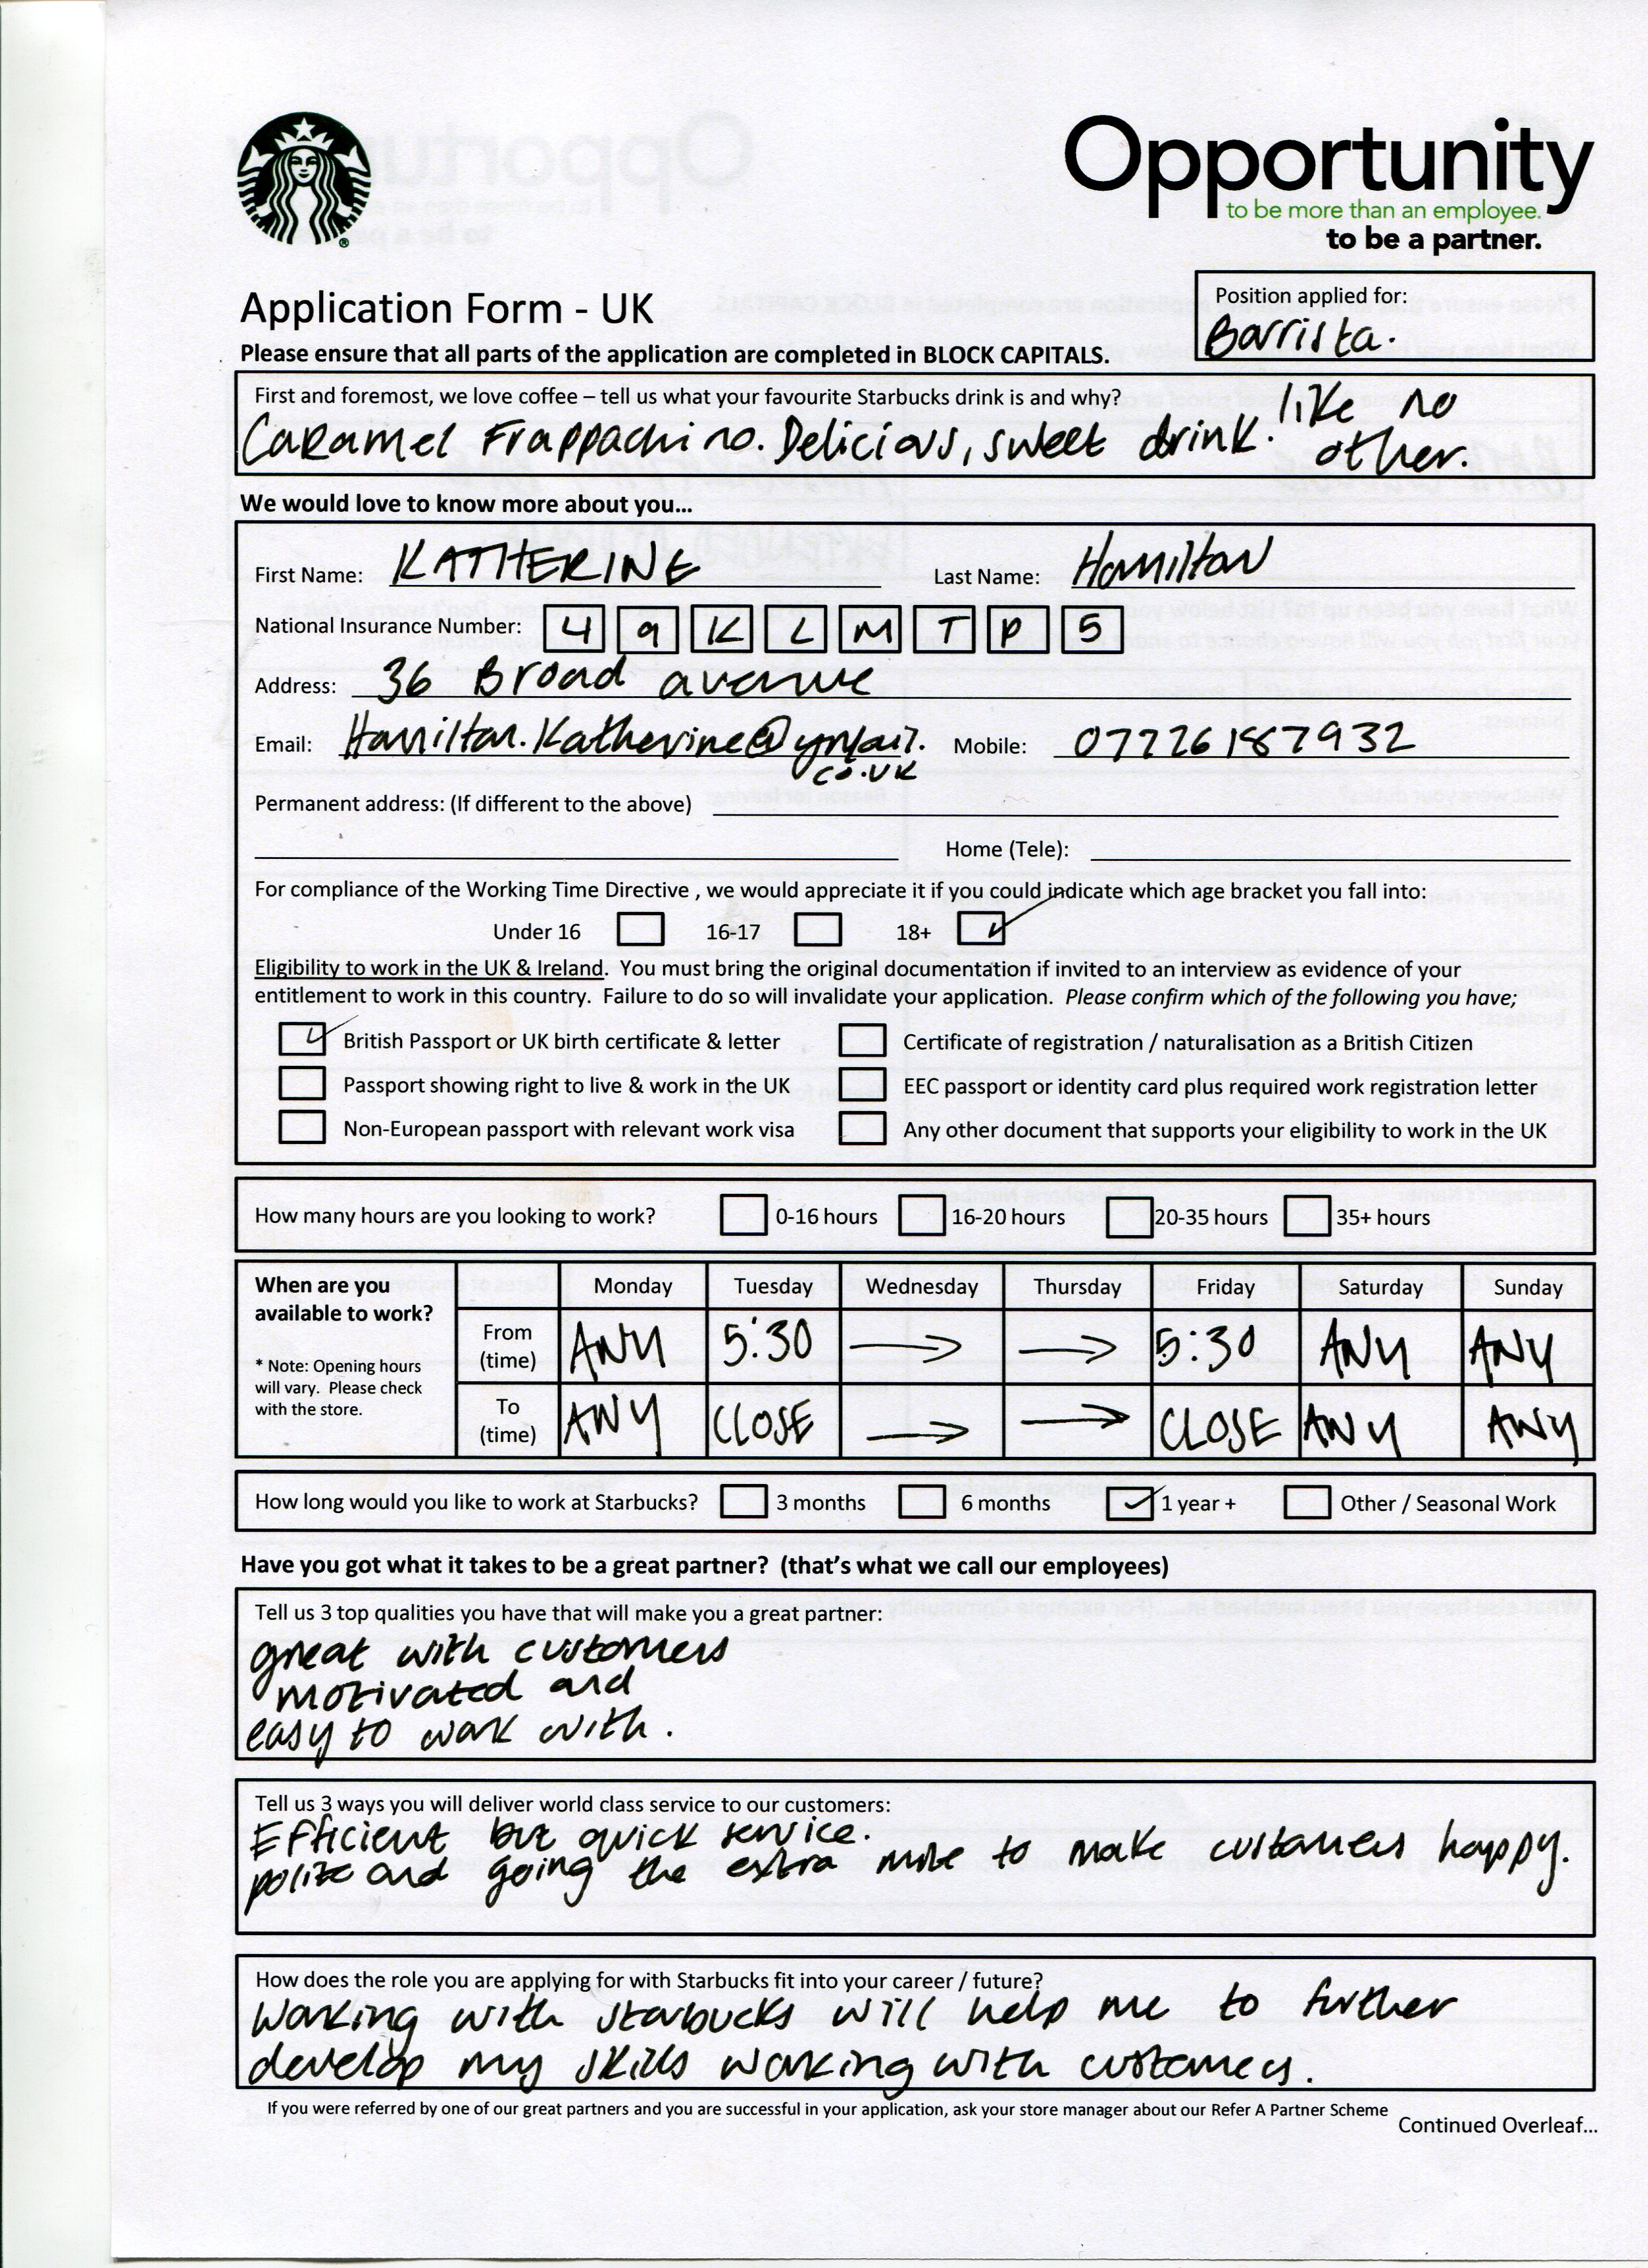 Opportunity
to be more than an employee.
to be a partner.
Application Form - UK
Position applied for:
Barrista.
Please ensure that all parts of the application are completed in BLOCK CAPITALS.
First and foremost, we love coffee – tell us what your favourite Starbucks drink is and why?
Caramel Frappachino. Delicious, sweet drink. like no
other.
We would love to know more about you...
First Name: KATHERINE Last Name: Hamilton
National Insurance Number: 4 9 K L M T P 5
Address: 36 Broad avenue
Email: Hamilton.Katherine@ymail. Mobile: 07726187932
co.uk
Permanent address: (If different to the above)
Home (Tele):
For compliance of the Working Time Directive , we would appreciate it if you could indicate which age bracket you fall into:
Under 16 16-17 18+ ✓
Eligibility to work in the UK & Ireland. You must bring the original documentation if invited to an interview as evidence of your
entitlement to work in this country. Failure to do so will invalidate your application. Please confirm which of the following you have;
✓ British Passport or UK birth certificate & letter Certificate of registration / naturalisation as a British Citizen
Passport showing right to live & work in the UK EEC passport or identity card plus required work registration letter
Non-European passport with relevant work visa Any other document that supports your eligibility to work in the UK
How many hours are you looking to work? 0-16 hours 16-20 hours 20-35 hours 35+ hours
When are you
available to work?
* Note: Opening hours
will vary. Please check
with the store.
Monday Tuesday Wednesday Thursday Friday Saturday Sunday
From
(time)
ANY 5:30 → → 5:30 ANY ANY
To
(time)
ANY CLOSE → → CLOSE ANY ANY
How long would you like to work at Starbucks? 3 months 6 months ✓ 1 year + Other / Seasonal Work
Have you got what it takes to be a great partner? (that's what we call our employees)
Tell us 3 top qualities you have that will make you a great partner:
great with customers
motivated and
easy to work with.
Tell us 3 ways you will deliver world class service to our customers:
Efficient but quick service.
polite and going the extra mile to make customers happy.
How does the role you are applying for with Starbucks fit into your career / future?
Working with starbucks will help me to further
develop my skills working with customers.
If you were referred by one of our great partners and you are successful in your application, ask your store manager about our Refer A Partner Scheme
Continued Overleaf...